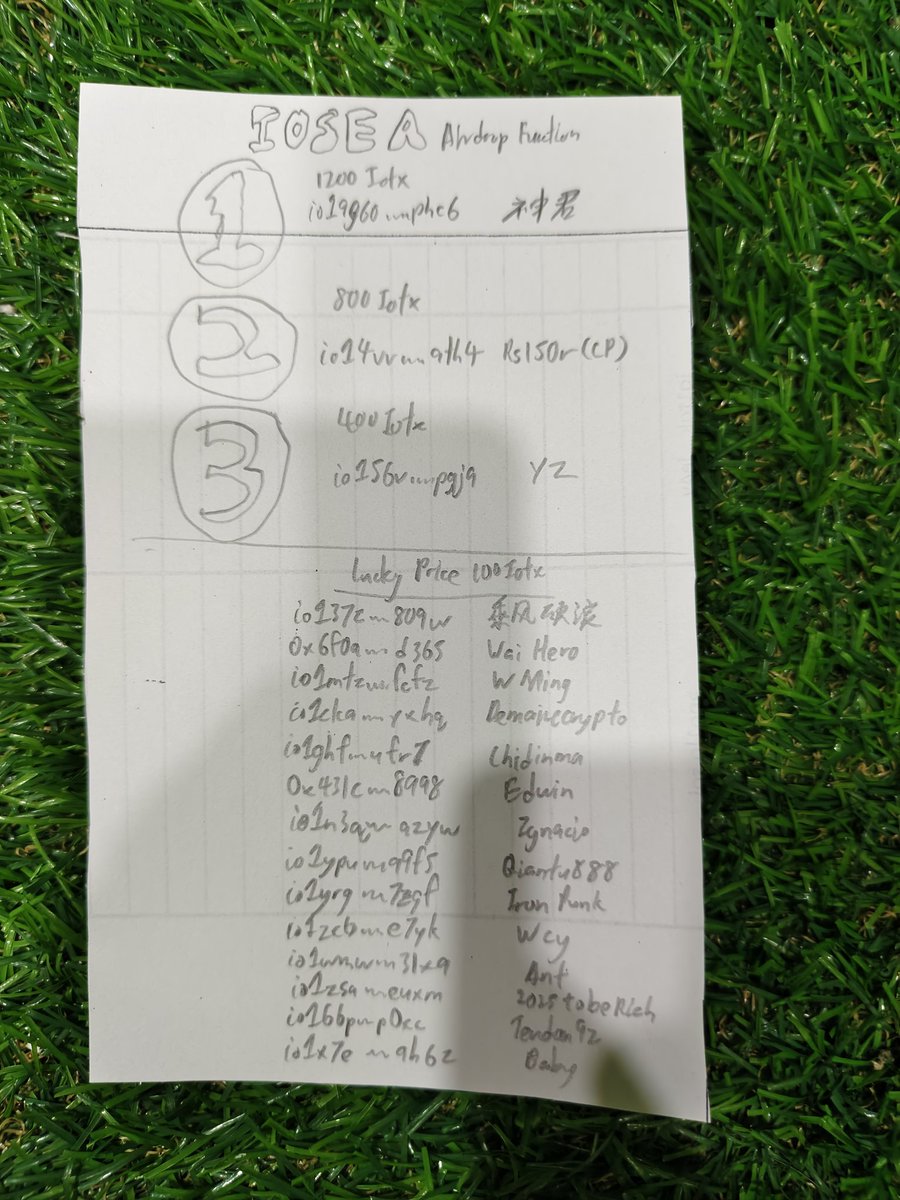 IOSEA Ahrdrop Function
1
1200 Iotx
io19g60...mphe6 神君
2
800 Iotx
io14vr...ath4 Rs150r(CP)
3
400 Iotx
io156v...pgja YZ
Lucky Price 100Iotx
io137z...809w 乘风破浪
0x6f0a...d365 Wai Hero
io1mtz...fcfz W Ming
io1cka...yxhq
io1ghf...ufr7 Chidinma
0x431c...8998 Edwin
azyw Zgnacio
io1ypu...a9f5 Qiantu888
io1yrg...7zgf Iron Punk
io1zcb...e7yk Wcy
Ant
io1zsa...euxm 2025tobeRich
io166p...p0xc Tendon92
io1x7e...ah6z Baby